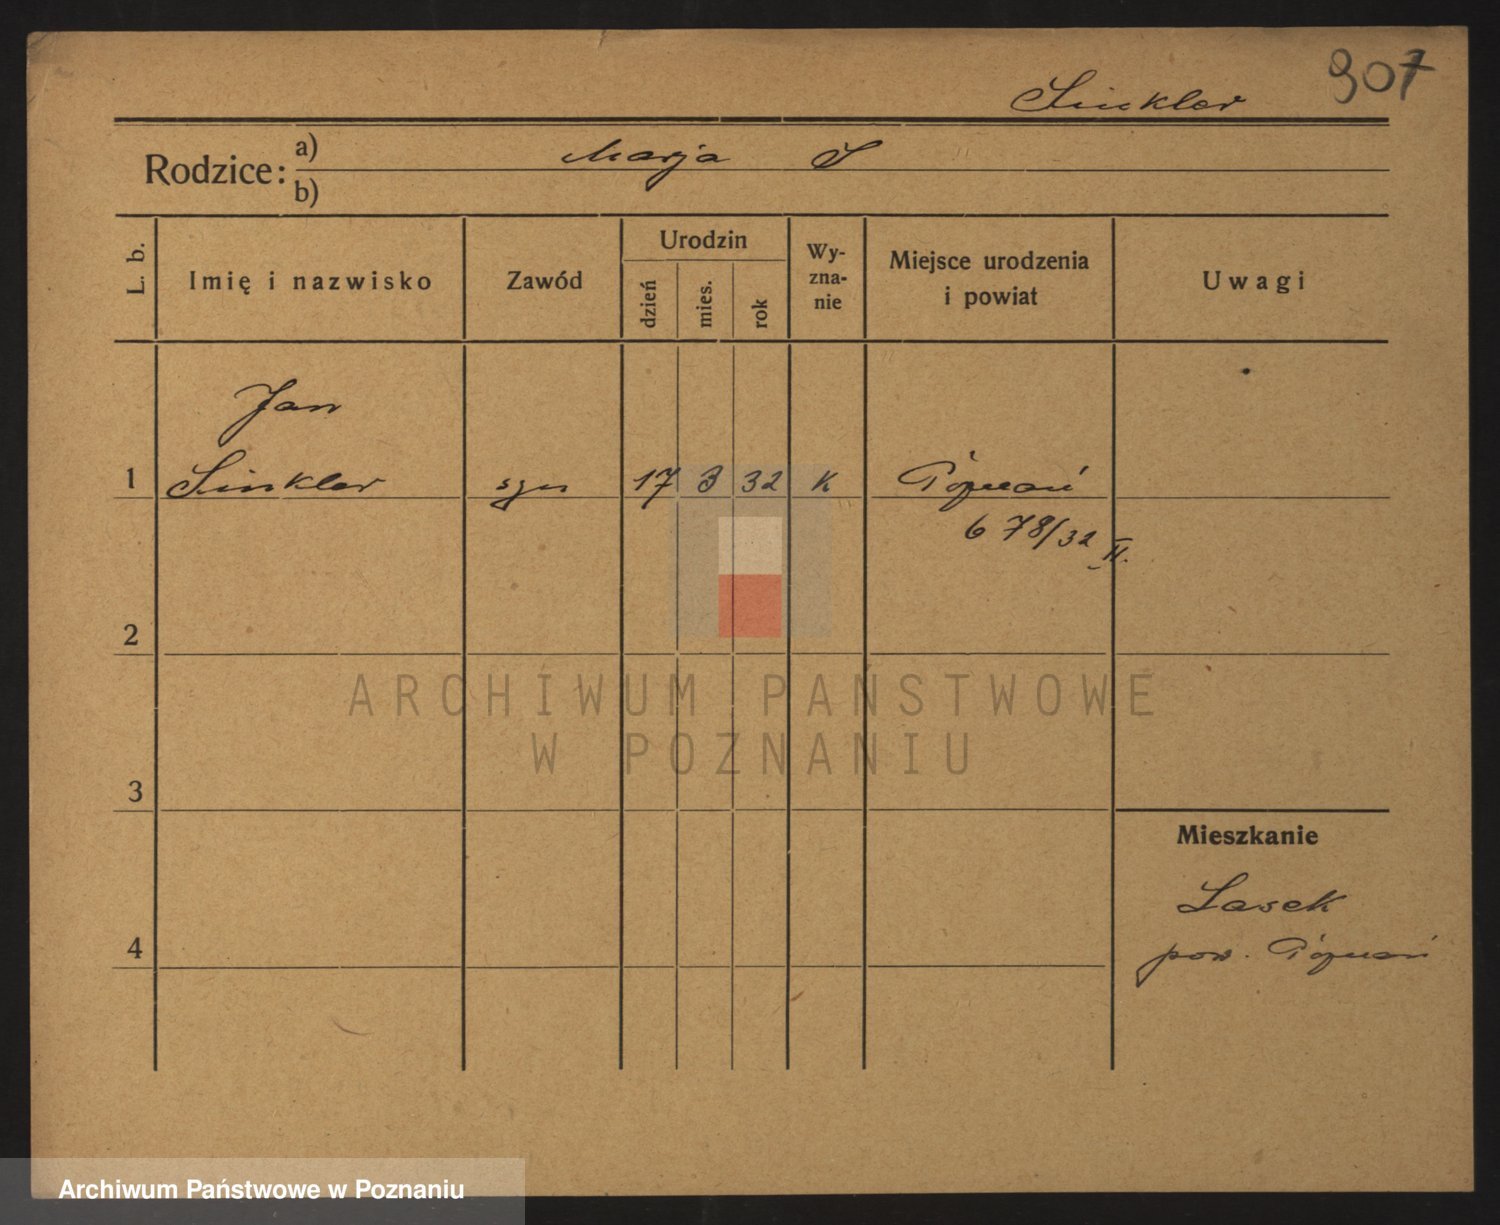 907
Sinkler
Rodzice:
a) Marja S
b)
L. b.
Imię i nazwisko
Zawód
Urodzin
dzień
mies.
rok
Wy-
zna-
nie
Miejsce urodzenia
i powiat
Uwagi
Jan
1 Sinkler syn 17 3 32 K Poznań
6 78/32 II.
2
3
4
Mieszkanie
Lasek
pow. Poznań
ARCHIWUM PAŃSTWOWE
W POZNANIU
Archiwum Państwowe w Poznaniu